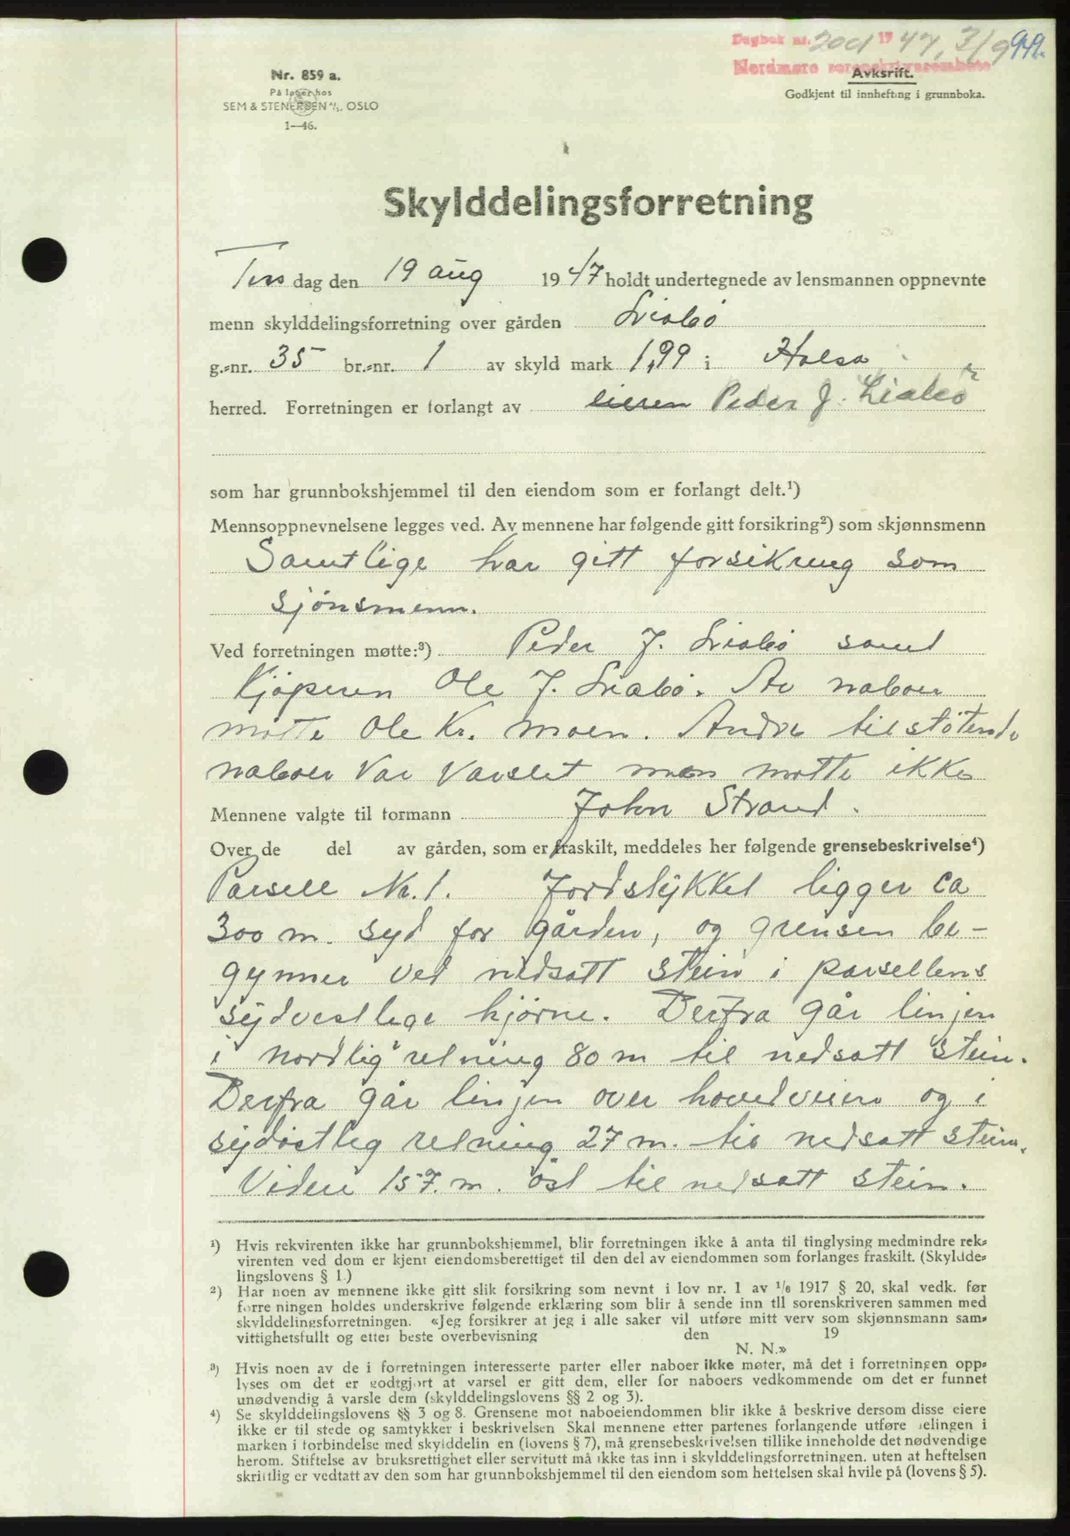 Dagbok nr. 2001 1947, 3/9 949.
Nordmøre sorenskriverembete
Nr. 859 a.
På lager hos
SEM & STENERSEN A/S, OSLO
1—46.
Avksrift.
Godkjent til innhefting i grunnboka.
Skylddelingsforretning
Tirs dag den 19 aug 1947 holdt undertegnede av lensmannen oppnevnte
menn skylddelingsforretning over gården Liabø
g.-nr. 35 br.-nr. 1 av skyld mark 1,99 i Halsa
herred. Forretningen er forlangt av eieren Peder J. Liabø
som har grunnbokshjemmel til den eiendom som er forlangt delt.¹)
Mennsoppnevnelsene legges ved. Av mennene har følgende gitt forsikring²) som skjønnsmenn
Samtlige har gitt forsikring som
sjönsmenn.
Ved forretningen møtte:³) Peder J. Liabö samt
Kjöperen Ole J. Liabö. Av naboer
mötte Ole Kr. Moen. Andre tilstötende
naboer var varslet men mötte ikke
Mennene valgte til formann John Strand.
Over de del av gården, som er fraskilt, meddeles her følgende grensebeskrivelse⁴)
Parsell Nr. 1. Jordstykket ligger ca
300 m. syd for gården, og grensen be-
gynner ved nedsatt stein i parsellens
sydvestlige hjörne. Derfra går linjen
i nordlig retning 80 m til nedsatt stein.
Derfra går linjen over hovedveien og i
sydöstlig retning 27 m. til nedsatt stein.
Videre 157. m. öst til nedsatt stein.
¹) Hvis rekvirenten ikke har grunnbokshjemmel, blir forretningen ikke å anta til tinglysing medmindre rek-
virenten ved dom er kjent eiendomsberettiget til den del av eiendommen som forlanges fraskilt. (Skyldde-
lingslovens § 1.)
²) Har noen av mennene ikke gitt slik forsikring som nevnt i lov nr. 1 av 1/6 1917 § 20, skal vedk. før
forretningen holdes underskrive følgende erklæring som blir å sende inn til sorenskriveren sammen med
skylddelingsforretningen. «Jeg forsikrer at jeg i alle saker vil utføre mitt verv som skjønnsmann sam-
vittighetsfullt og etter beste overbevisning den 19
N. N.»
³) Hvis noen av de i forretningen interesserte parter eller naboer ikke møter, må det i forretningen opp-
lyses om det er godtgjort at varsel er gitt dem, eller for naboers vedkommende om det er funnet
unødvendig å varsle dem (skylddelingslovens §§ 2 og 3).
⁴) Se skylddelingslovens §§ 3 og 8. Grensene mot naboeiendommen blir ikke å beskrive dersom disse eiere
ikke er til stede og samtykker i beskrivelsen Skal mennene etter partenes forlangende utføre delingen i
marken i forbindelse med skylddelingen (lovens § 7), må grensebeskrivelsen tillike inneholde det nødvendige
herom. Stiftelse av bruksrettighet eller servitutt må ikke tas inn i skylddelingsforretningen. uten at heftelsen
skriftlig er vedtatt av den som har grunnbokshjemmel til den eiendom som heftelsen skal hvile på (lovens § 5).